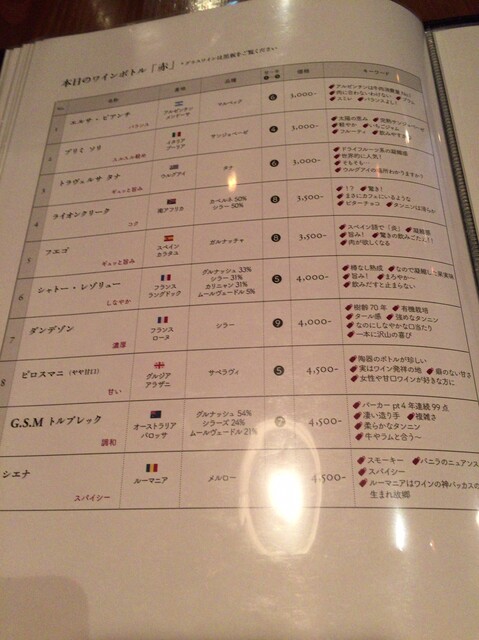 本日のワインボトル「赤」*グラスワインは黒板をご覧ください
No. 名称 産地 品種 価格 キーワード
1 エエサ・ビアンチ アルゼンチン マルベック 6 3,000-
バランス メンドーサ
スミレ バランスよし!
2 プリミ ソリ イタリア サンジョベーゼ 4 3,000-
プーリア
軽やか いちごジャム
フルーティ 飲みやすさ
3 トラヴェルサ タナ ウルグアイ タナ 6 3,000-
ギュッと旨み
ドライフルーツ系の凝縮感
世界的に人気!
そもそも…
ウルグアイの場所わかりますか?
4 ライオンクリーク 南アフリカ カベルネ 50% 8 3,500-
コク シラー 50%
!? 驚き!
まさにカフェにいるような
ビターチョコ タンニンは滑らか
5 フエゴ スペイン ガルナッチャ 8 3,500-
ギュッと旨み カラタユ
スペイン語で「炎」 凝縮感
旨み! 驚きの飲みごたえ!!
肉が欲しくなる
6 シャトー・レゾリュー フランス グルナッシュ 33% 5 4,000-
しなやか ラングドック シラー 31%
カリニャン 31%
ムールヴェードル 5%
樽なし熟成 なので凝縮した果実味
旨み! まろやか〜
飲みだすと止まらない
7 ダンデゾン フランス シラー 9 4,000-
濃厚 ローヌ
樹齢 70 年 有機栽培
タール感 強めなタンニン
なのにしなやかな口当たり
一本に沢山の喜び
8 ピロスマニ (やや甘口) グルジア サペラヴィ 5 4,500-
甘い アラザニ
陶器のボトルが珍しい
実はワイン発祥の地 癖のない甘さ
女性や甘口ワインが好きな方に
G.S.M トルブレック オーストラリア グルナッシュ 54% 7 4,500-
調和 バロッサ シラーズ 24%
ムールヴェードル 21%
パーカー pt 4 年連続 99 点
凄い造り手 複雑さ
柔らかなタンニン
牛やラムと合う〜
シエナ ルーマニア メルロー 4,500-
スパイシー
スモーキー バニラのニュアンス
スパイシー
ルーマニアはワインの神バッカスの
生まれ故郷